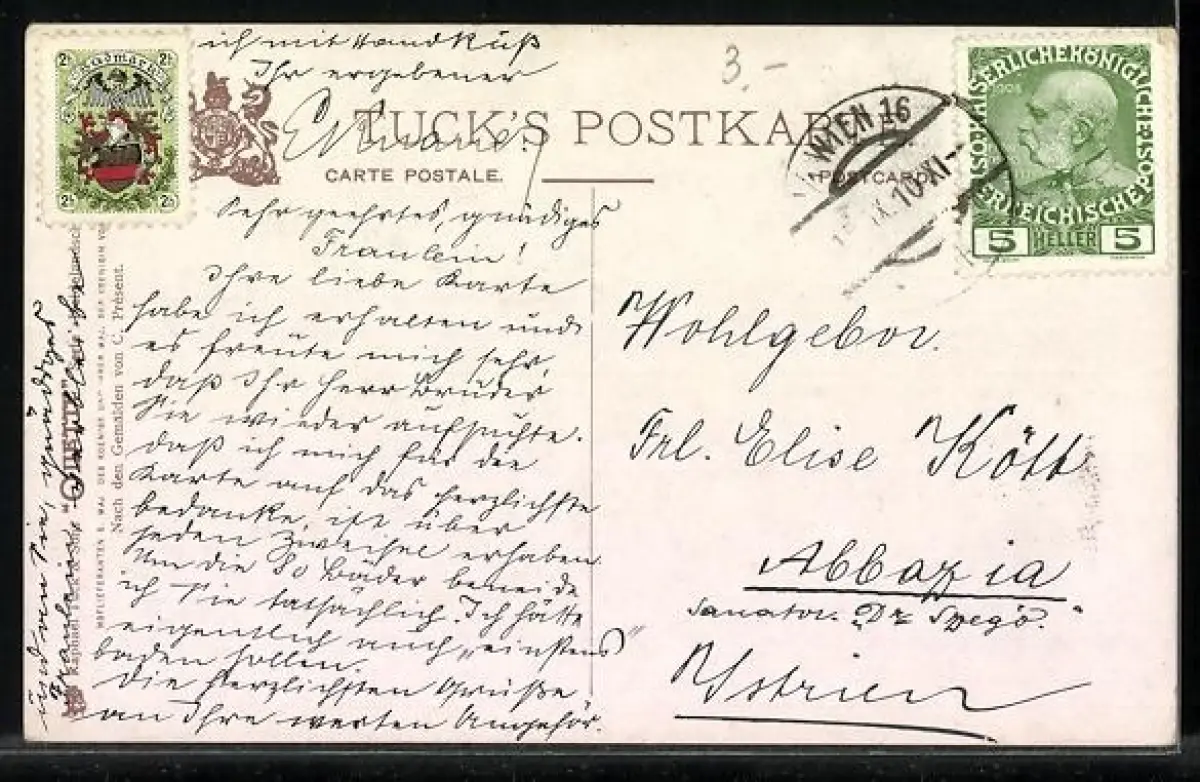 ich mit Handkuß
Ihr ergebener
TUCK'S POSTKARTE.
CARTE POSTALE.
POSTCARD
2h
2h
Südmark
2h
2h
WIEN 16
10·XI
KAISERLICHE KÖNIGLICHE ÖSTERREICHISCHE POST
1908
5 HELLER 5
Sehr geehrtes, gnädiges
Fräulein!
Ihre liebe Karte
habe ich erhalten und
es freute mich sehr,
daß Ihr Herr Bruder
Sie wieder aufsuchte.
daß ich mich für die
Karte auf das herzlichste
bedanke, ist über
jeden Zweifel erhaben.
Um die 80 Bäder beneide
ich Sie tatsächlich. Ich hätte
eigentlich auch „einstens"
baden sollen.
Die herzlichsten Grüße
an Ihre werten Angehör.
und an Sie, gnädiges
Fräulein
Raphael Tuck & Sons' "OILETTE"
HOFLIEFERANTEN S. MAJ. DES KOENIGS UND IHRER MAJ. DER KOENIGIN VO
Nach den Gemälden von C. Présent.
3.-
Wohlgebor.
Frl. Elise Kött
Abbazia
Sanator. Dr Szegö.
Istrien